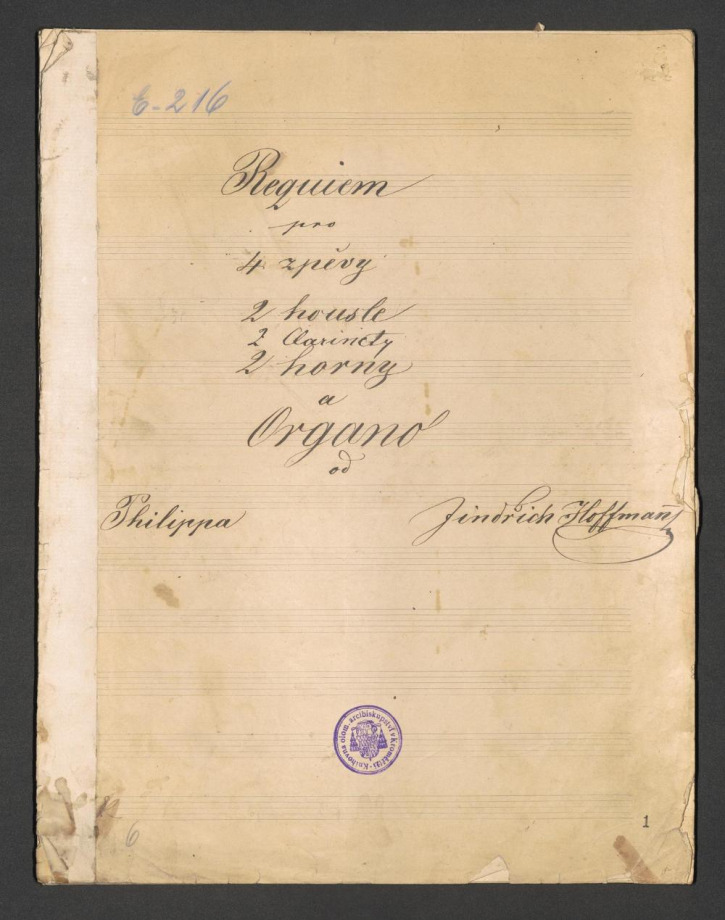 E-216
Requiem
pro
4 zpěvy
2 housle
2 Clarinety
2 horny
a
Organo
od
Philippa
Jindřich Hoffmann
Knihovna olom. arcibiskupství v Kroměříži
1
6